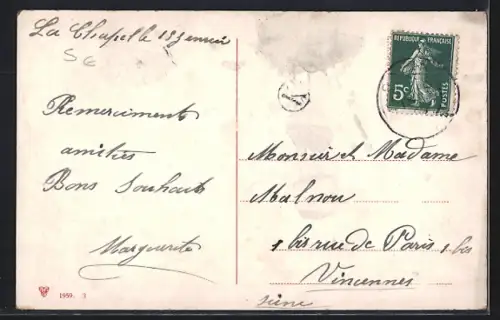 La Chapelle 133 enuii
SG
Remerciment
amitiés
Bons Souhaits
Marguerite
1959. 1
REPUBLIQUE FRANÇAISE
5c
POSTES
Monsieur et Madame
Malnou
1 bis rue de Paris 1 bis
Vincennes
Seine